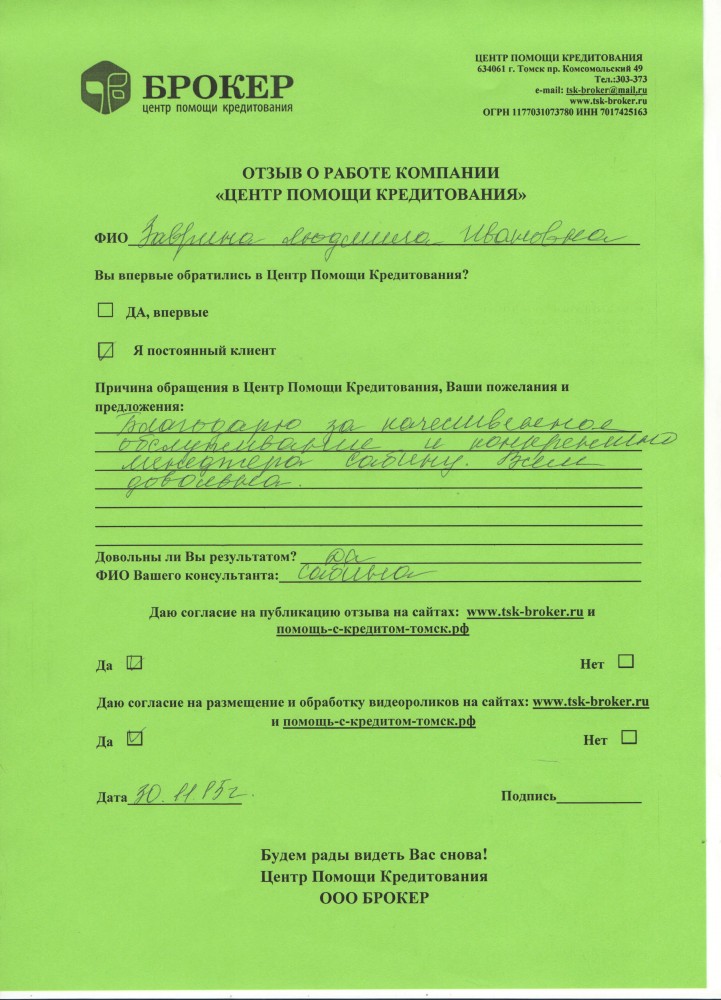 БРОКЕР
центр помощи кредитования
ЦЕНТР ПОМОЩИ КРЕДИТОВАНИЯ
634061 г. Томск пр. Комсомольский 49
Тел.:303-373
e-mail: tsk-broker@mail.ru
www.tsk-broker.ru
ОГРН 1177031073780 ИНН 7017425163
ОТЗЫВ О РАБОТЕ КОМПАНИИ
«ЦЕНТР ПОМОЩИ КРЕДИТОВАНИЯ»
ФИО Гаврина Людмила Ивановна
Вы впервые обратились в Центр Помощи Кредитования?
ДА, впервые
Я постоянный клиент
Причина обращения в Центр Помощи Кредитования, Ваши пожелания и
предложения:
Благодарю за качественное
обслуживание и конкретно
менеджера Сабину. Всем
довольна.
Довольны ли Вы результатом? Да
ФИО Вашего консультанта: Сабина
Даю согласие на публикацию отзыва на сайтах: www.tsk-broker.ru и
помощь-с-кредитом-томск.рф
Да Нет
Даю согласие на размещение и обработку видеороликов на сайтах: www.tsk-broker.ru
и помощь-с-кредитом-томск.рф
Да Нет
Дата 30.11.15г. Подпись
Будем рады видеть Вас снова!
Центр Помощи Кредитования
ООО БРОКЕР